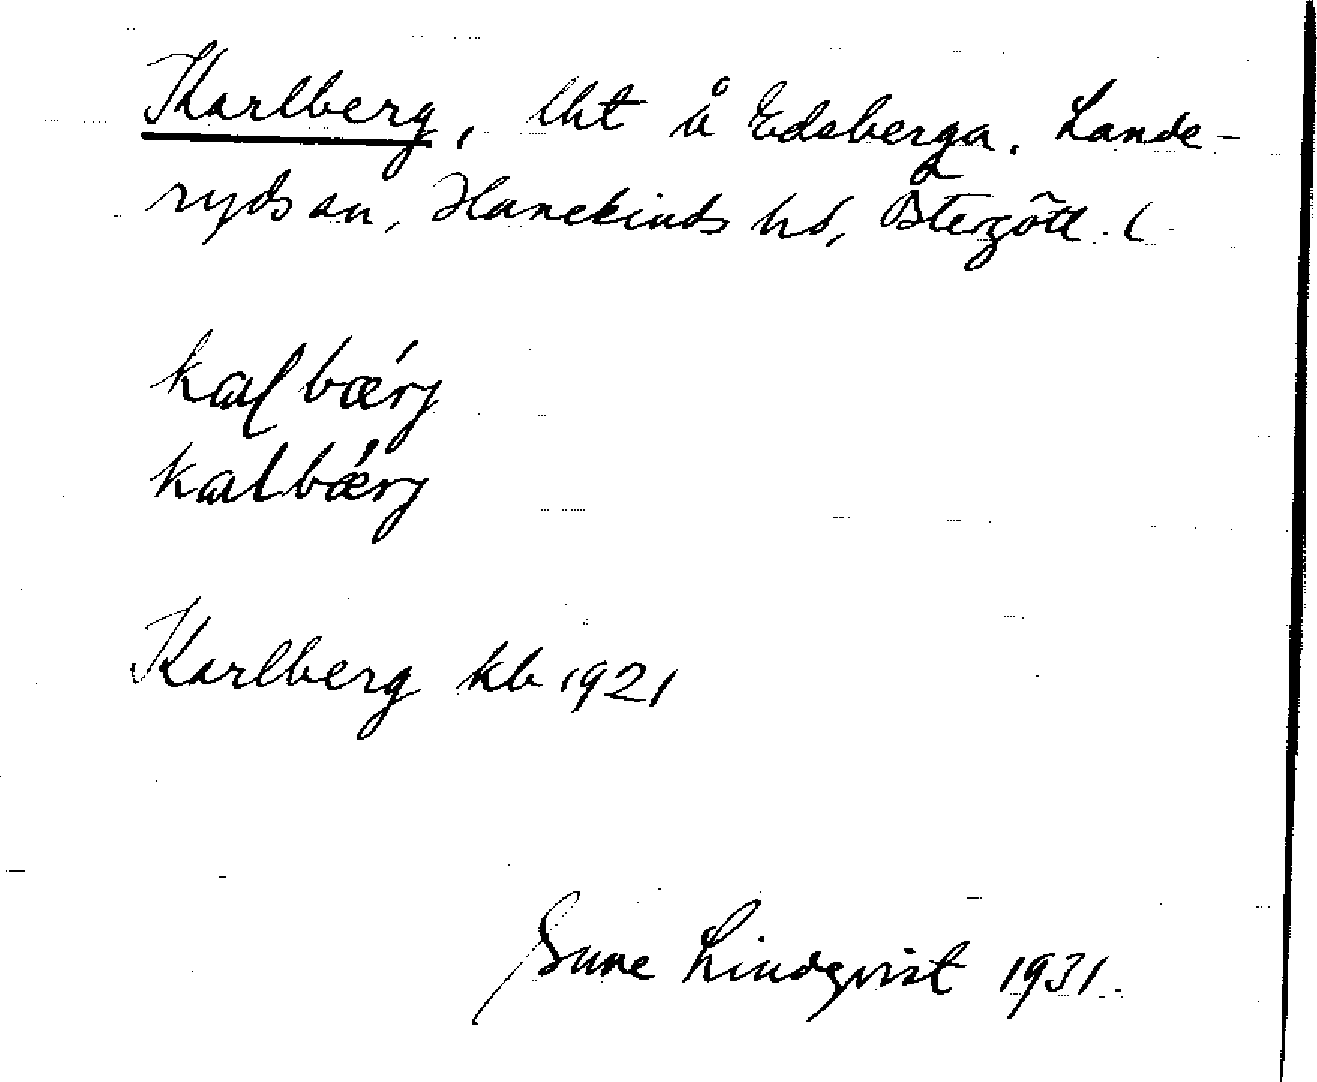 Karlberg, lht å Edsberga. Lande-
ryds sn, Hanekinds hd, Östergötl. l
kaɭbǽrj
kalbǽrj
Karlberg kb 1921
Sune Lindqvist 1931.